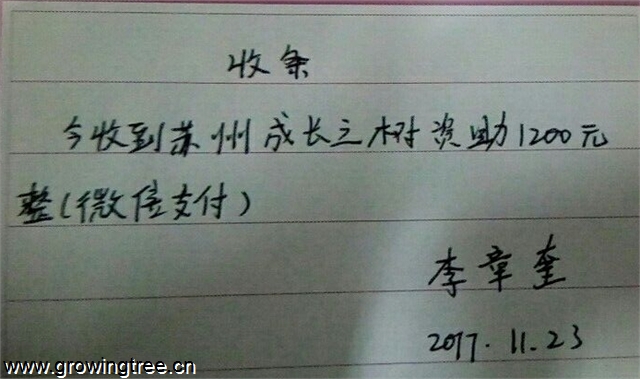 收条
今收到苏州成长之树资助1200元
整(微信支付)
李章奎
2017.11.23
www.growingtree.cn